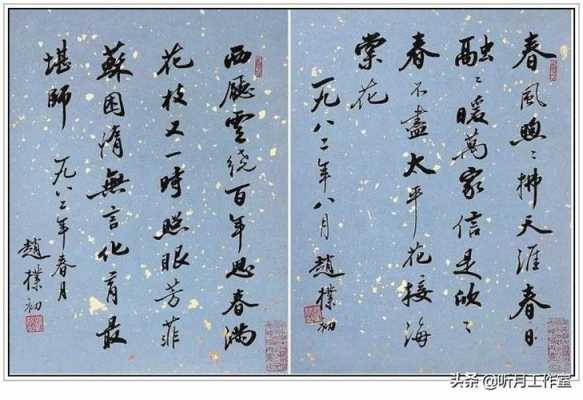 春風煦〻拂天涯春日
融〻暖萬家信是欣〻
春不盡太平花接海
棠花
一九八二年八月 趙樸初
西廳雲繞百年思春滿
花枝又一時照眼芳菲
蘇困惰無言化育最
堪師 一九八二年春月
趙樸初
头条 @听月工作室